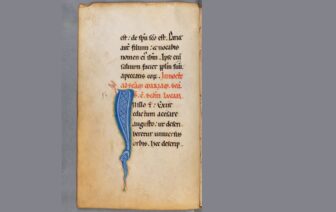 est: de spu sco est. Pariet
aut filium: et vocabis
nomen ei ihm. Ipse eni
saluum faciet pplm suu
a peccatis eoq.
scdm lucam
In illo t: Exiit
edictum a cesare
augusto: ut descri
beretur universus
orbis. hec descrip